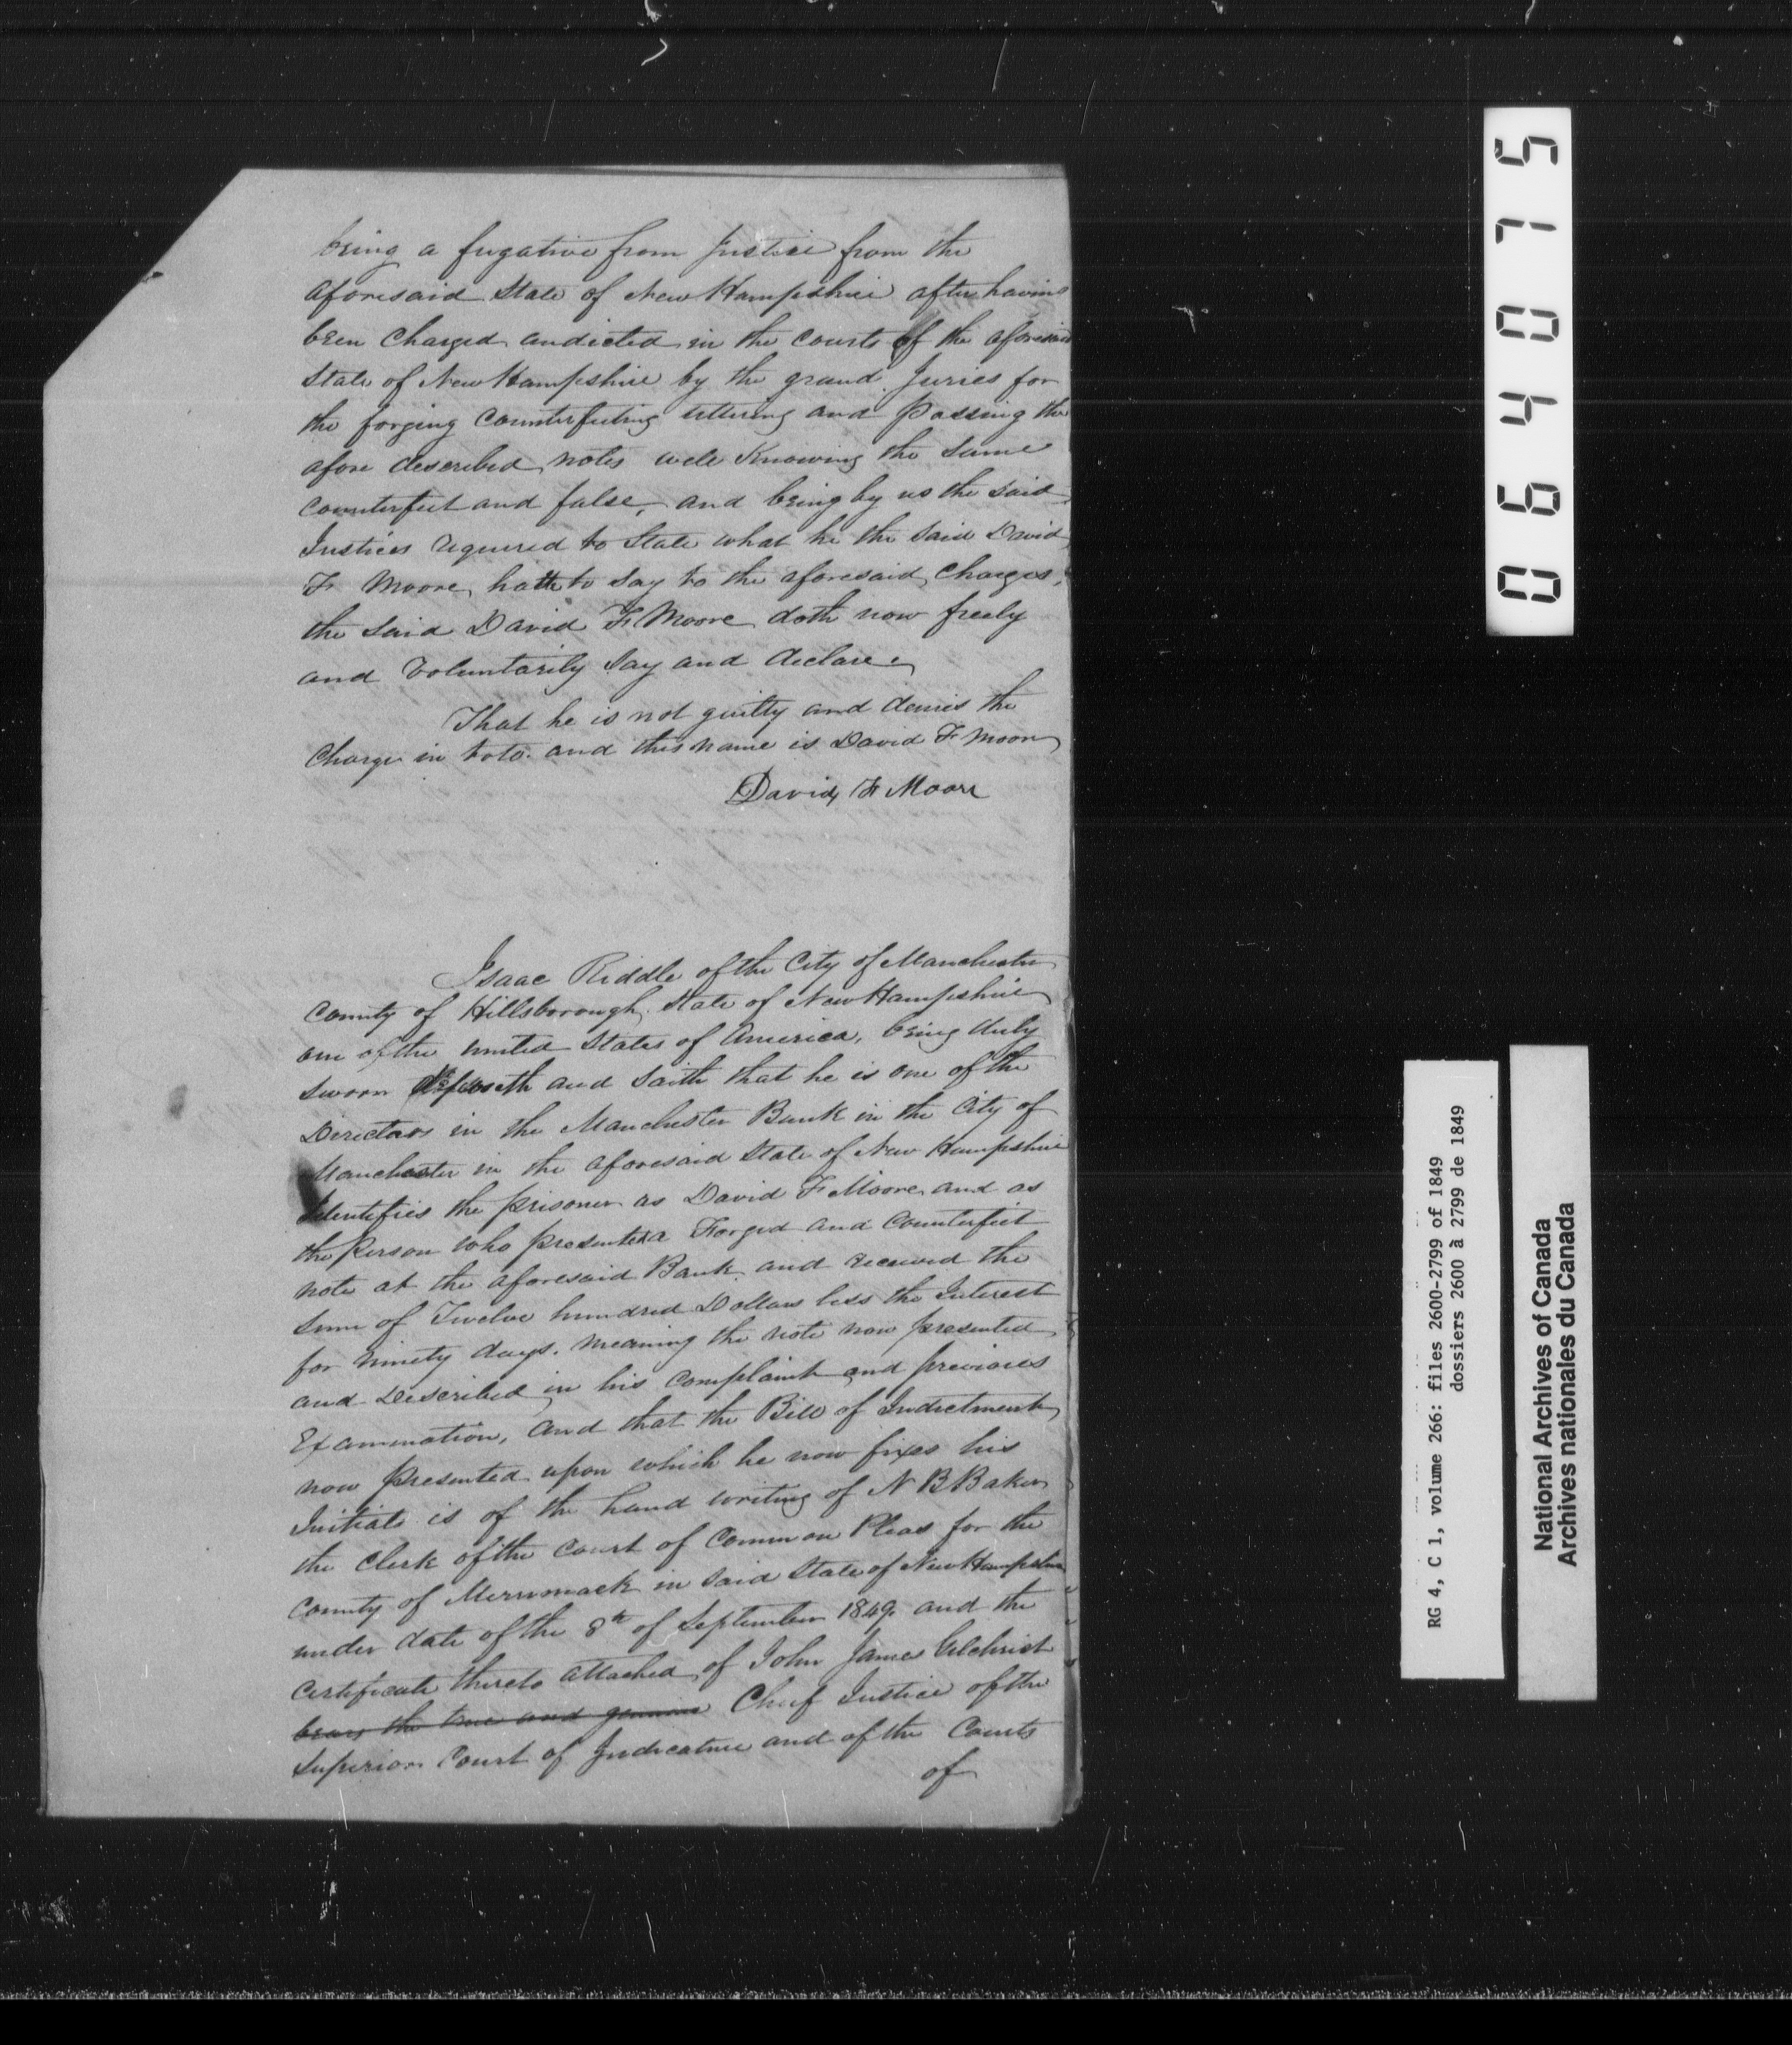 being a fugative from Justice from the
aforesaid State of New Hampshire after having
been Charged andicted in the Courts of the aforesaid
State of New Hampshire by the grand Juries for
the forging Counterfeiting uttering and Passing the
afore described notes well Knowing the Same
Counterfeit and false, and being by us the Said
Justices required to State what he the Said David
F. Moore, hath to Say to the aforesaid Charges,
the Said David F. Moore doth now freely
and Voluntarily Say and declare
That he is not guilty and denies the
Charge in toto. and this name is David F. Moore
David F. Moore
Isaac Riddle of the City of Manchester
County of Hillsborough State of New Hampshire
one of the United States of America, being duly
Sworn deposeth and Saith that he is one of the
Directors in the Manchester Bank in the City of
Manchester in the aforesaid State of New Hampshire
Identifies the prisoner as David F. Moore and as
the Person who presented a Forged and Counterfeit
note at the aforesaid Bank and received the
Sum of Twelve hundred Dollars less the Interest
for ninety days. meaning the note now presented
and Described in his Complaint and previous
Examination, and that the Bill of Indictment
now presented upon which he now fixes his
Initials is of the hand writing of N B Baker
the Clerk of the Court of Common Pleas for the
County of Merrimack in Said State of New Hampshire
under date of the 8th of September 1849. and the
Certificate thereto attached of John James Gilchrist
bears the true and genuine Chief Justice of the
Superior Court of Judicature and of the Courts
of
064075
RG 4, C 1, volume 266: files 2600-2799 of 1849
dossiers 2600 à 2799 de 1849
National Archives of Canada
Archives nationales du Canada